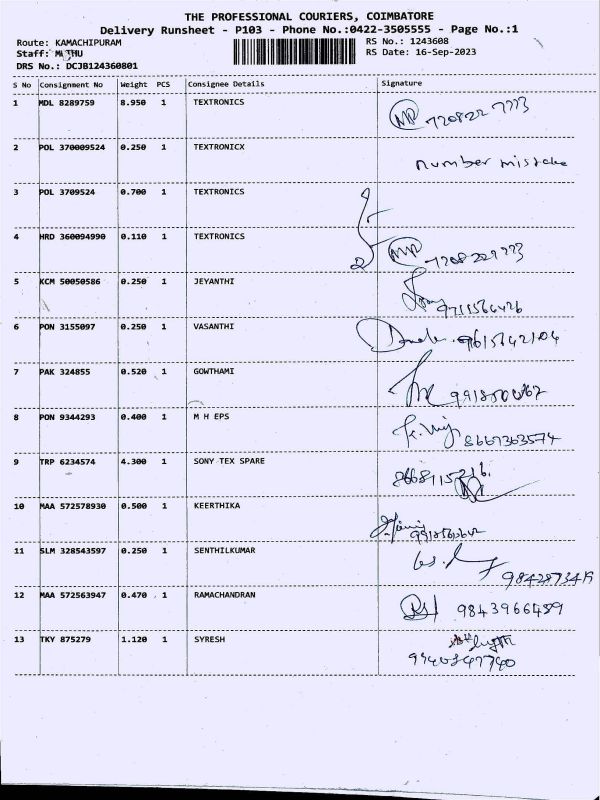 THE PROFESSIONAL COURIERS, COIMBATORE
Delivery Runsheet - P103 - Phone No.:0422-3505555 - Page No.:1
Route: KAMACHIPURAM RS No.: 1243608
Staff: MUTHU RS Date: 16-Sep-2023
DRS No.: DCJB124360801
S No Consignment No Weight PCS Consignee Details Signature
1 MDL 8289759 8.950 1 TEXTRONICS
2 POL 370009524 0.250 1 TEXTRONICX number mistake
3 POL 3709524 0.700 1 TEXTRONICS
4 HRD 360094990 0.110 1 TEXTRONICS
5 KCM 50050586 0.250 1 JEYANTHI
6 PON 3155097 0.250 1 VASANTHI 9615642104
7 PAK 324855 0.520 1 GOWTHAMI
8 PON 9344293 0.400 1 M H EPS 8667363574
9 TRP 6234574 4.300 1 SONY TEX SPARE
10 MAA 572578930 0.500 1 KEERTHIKA
11 SLM 328543597 0.250 1 SENTHILKUMAR
12 MAA 572563947 0.470 1 RAMACHANDRAN 9843966489
13 TKY 875279 1.120 1 SYRESH